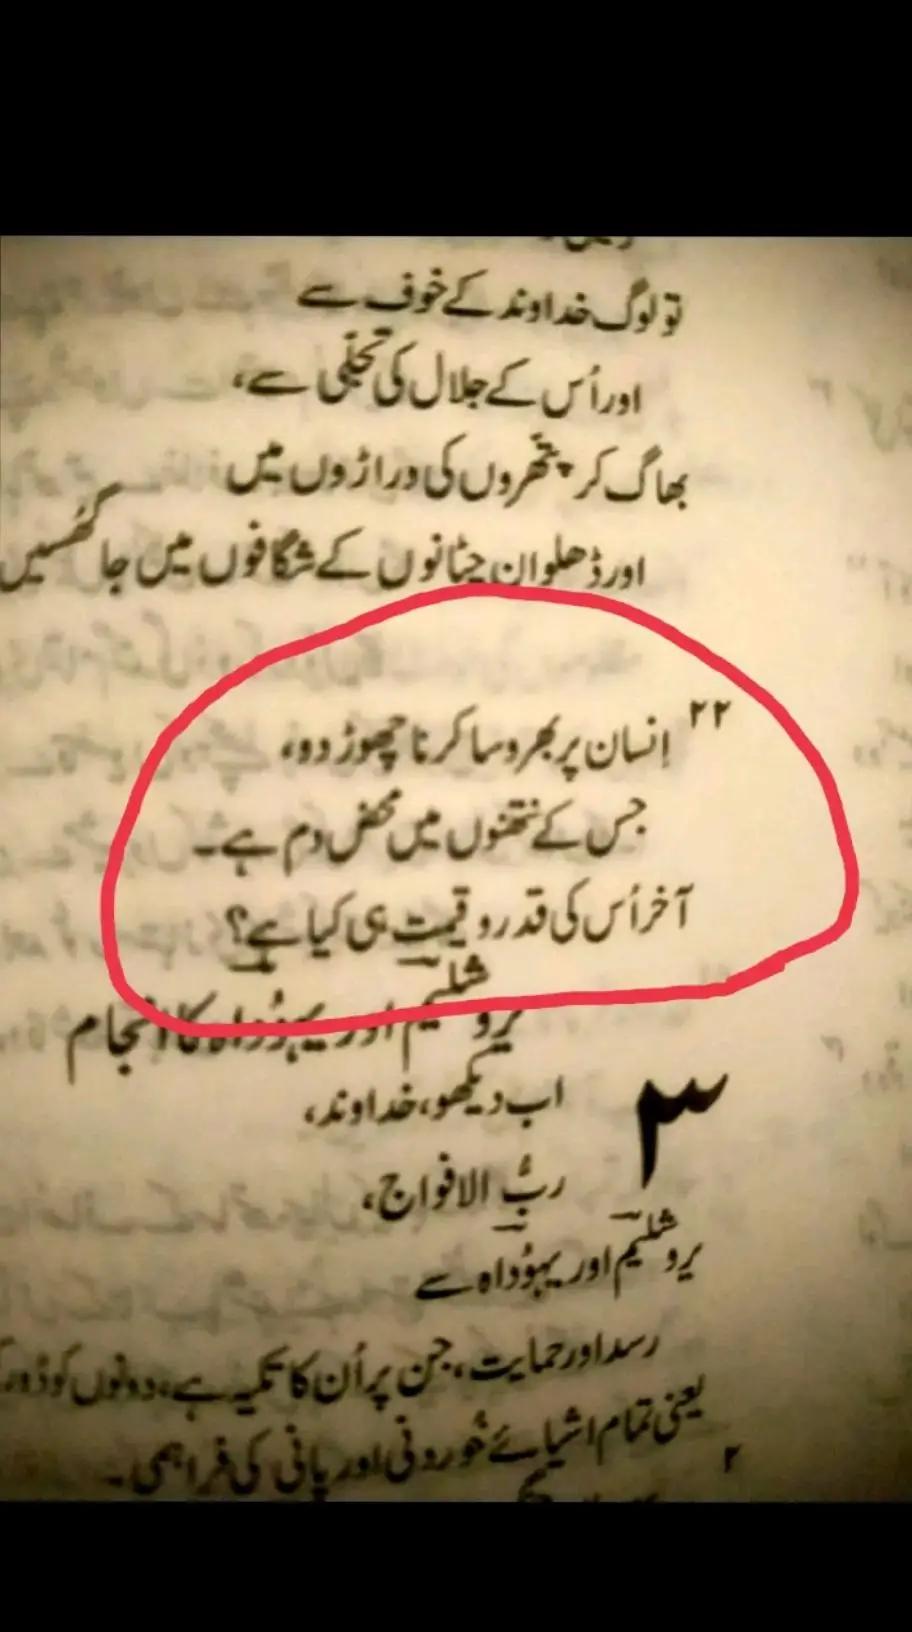 تو لوگ خداوند کے خوف سے
اور اُس کے جلال کی تجلّی سے،
بھاگ کر پتّھروں کی دراڑوں میں
اور ڈھلوان چٹانوں کے شگافوں میں جا گھُسیں
۲۲ اِنسان پر بھروسا کرنا چھوڑ دو،
جس کے نتھنوں میں محض دم ہے۔
آخر اُس کی قدر و قیمت ہی کیا ہے؟
یروشلیم اور یہوُداہ کا انجام
۳ اب دیکھو، خداوند،
ربُّ الافواج،
یروشلیم اور یہوُداہ سے
رسد اور حمایت، جن پر اُن کا تکیہ ہے، دونوں کو دُور
یعنی تمام اشیائے خُوردنی اور پانی کی فراہمی۔
۲